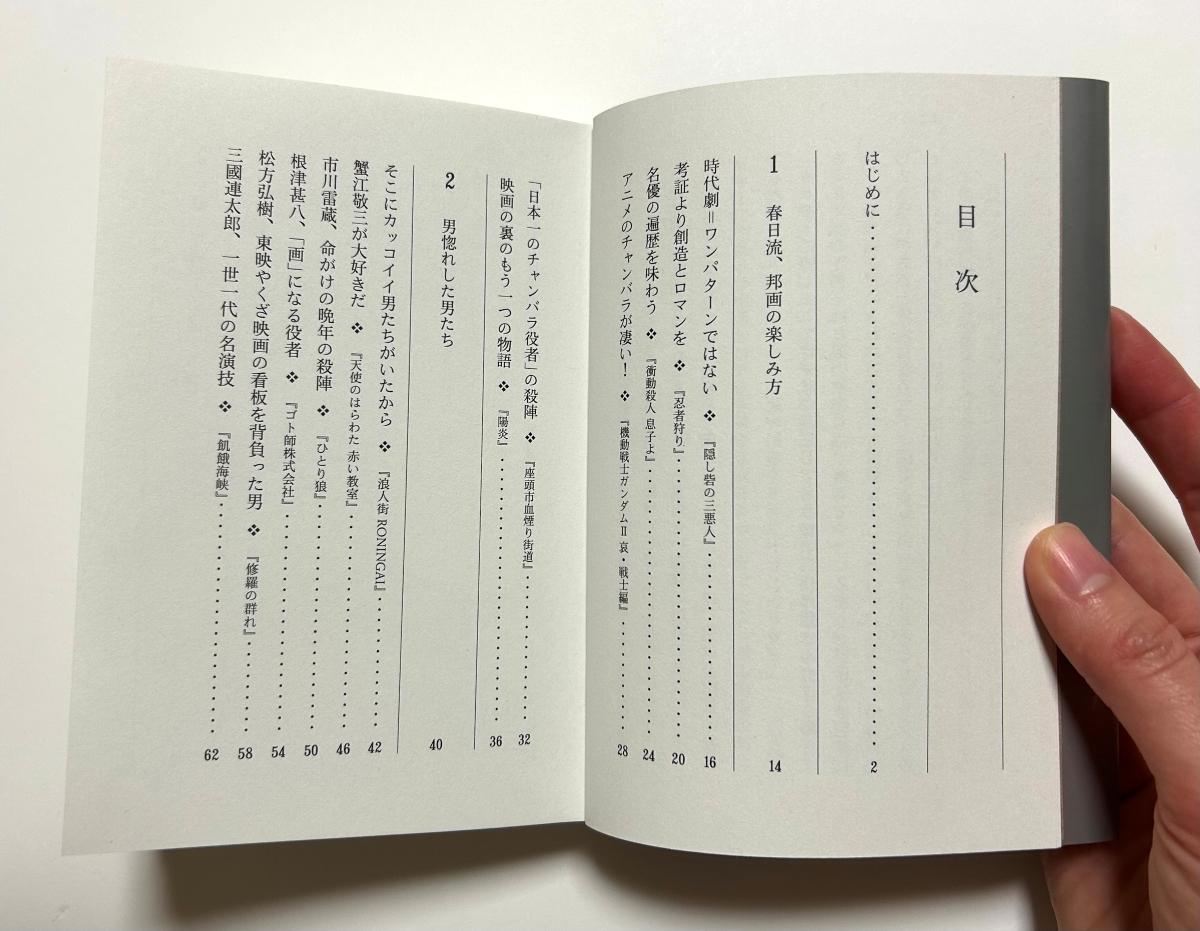 目次
はじめに……………………………………2
1 春日流、邦画の楽しみ方 14
時代劇＝ワンパターンではない ❖ 『隠し砦の三悪人』……………16
考証より創造とロマンを ❖ 『忍者狩り』……………20
名優の遍歴を味わう ❖ 『衝動殺人 息子よ』……………24
アニメのチャンバラが凄い！ ❖ 『機動戦士ガンダムⅡ 哀・戦士編』……………28
「日本一のチャンバラ役者」の殺陣 ❖ 『座頭市血煙り街道』……………32
映画の裏のもう一つの物語 ❖ 『陽炎』……………36
2 男惚れした男たち 40
そこにカッコイイ男たちがいたから ❖ 『浪人街 RONINGAI』……………42
蟹江敬三が大好きだ ❖ 『天使のはらわた 赤い教室』……………46
市川雷蔵、命がけの晩年の殺陣 ❖ 『ひとり狼』……………50
根津甚八、「画」になる役者 ❖ 『ゴト師株式会社』……………54
松方弘樹、東映やくざ映画の看板を背負った男 ❖ 『修羅の群れ』……………58
三國連太郎、一世一代の名演技 ❖ 『飢餓海峡』……………62